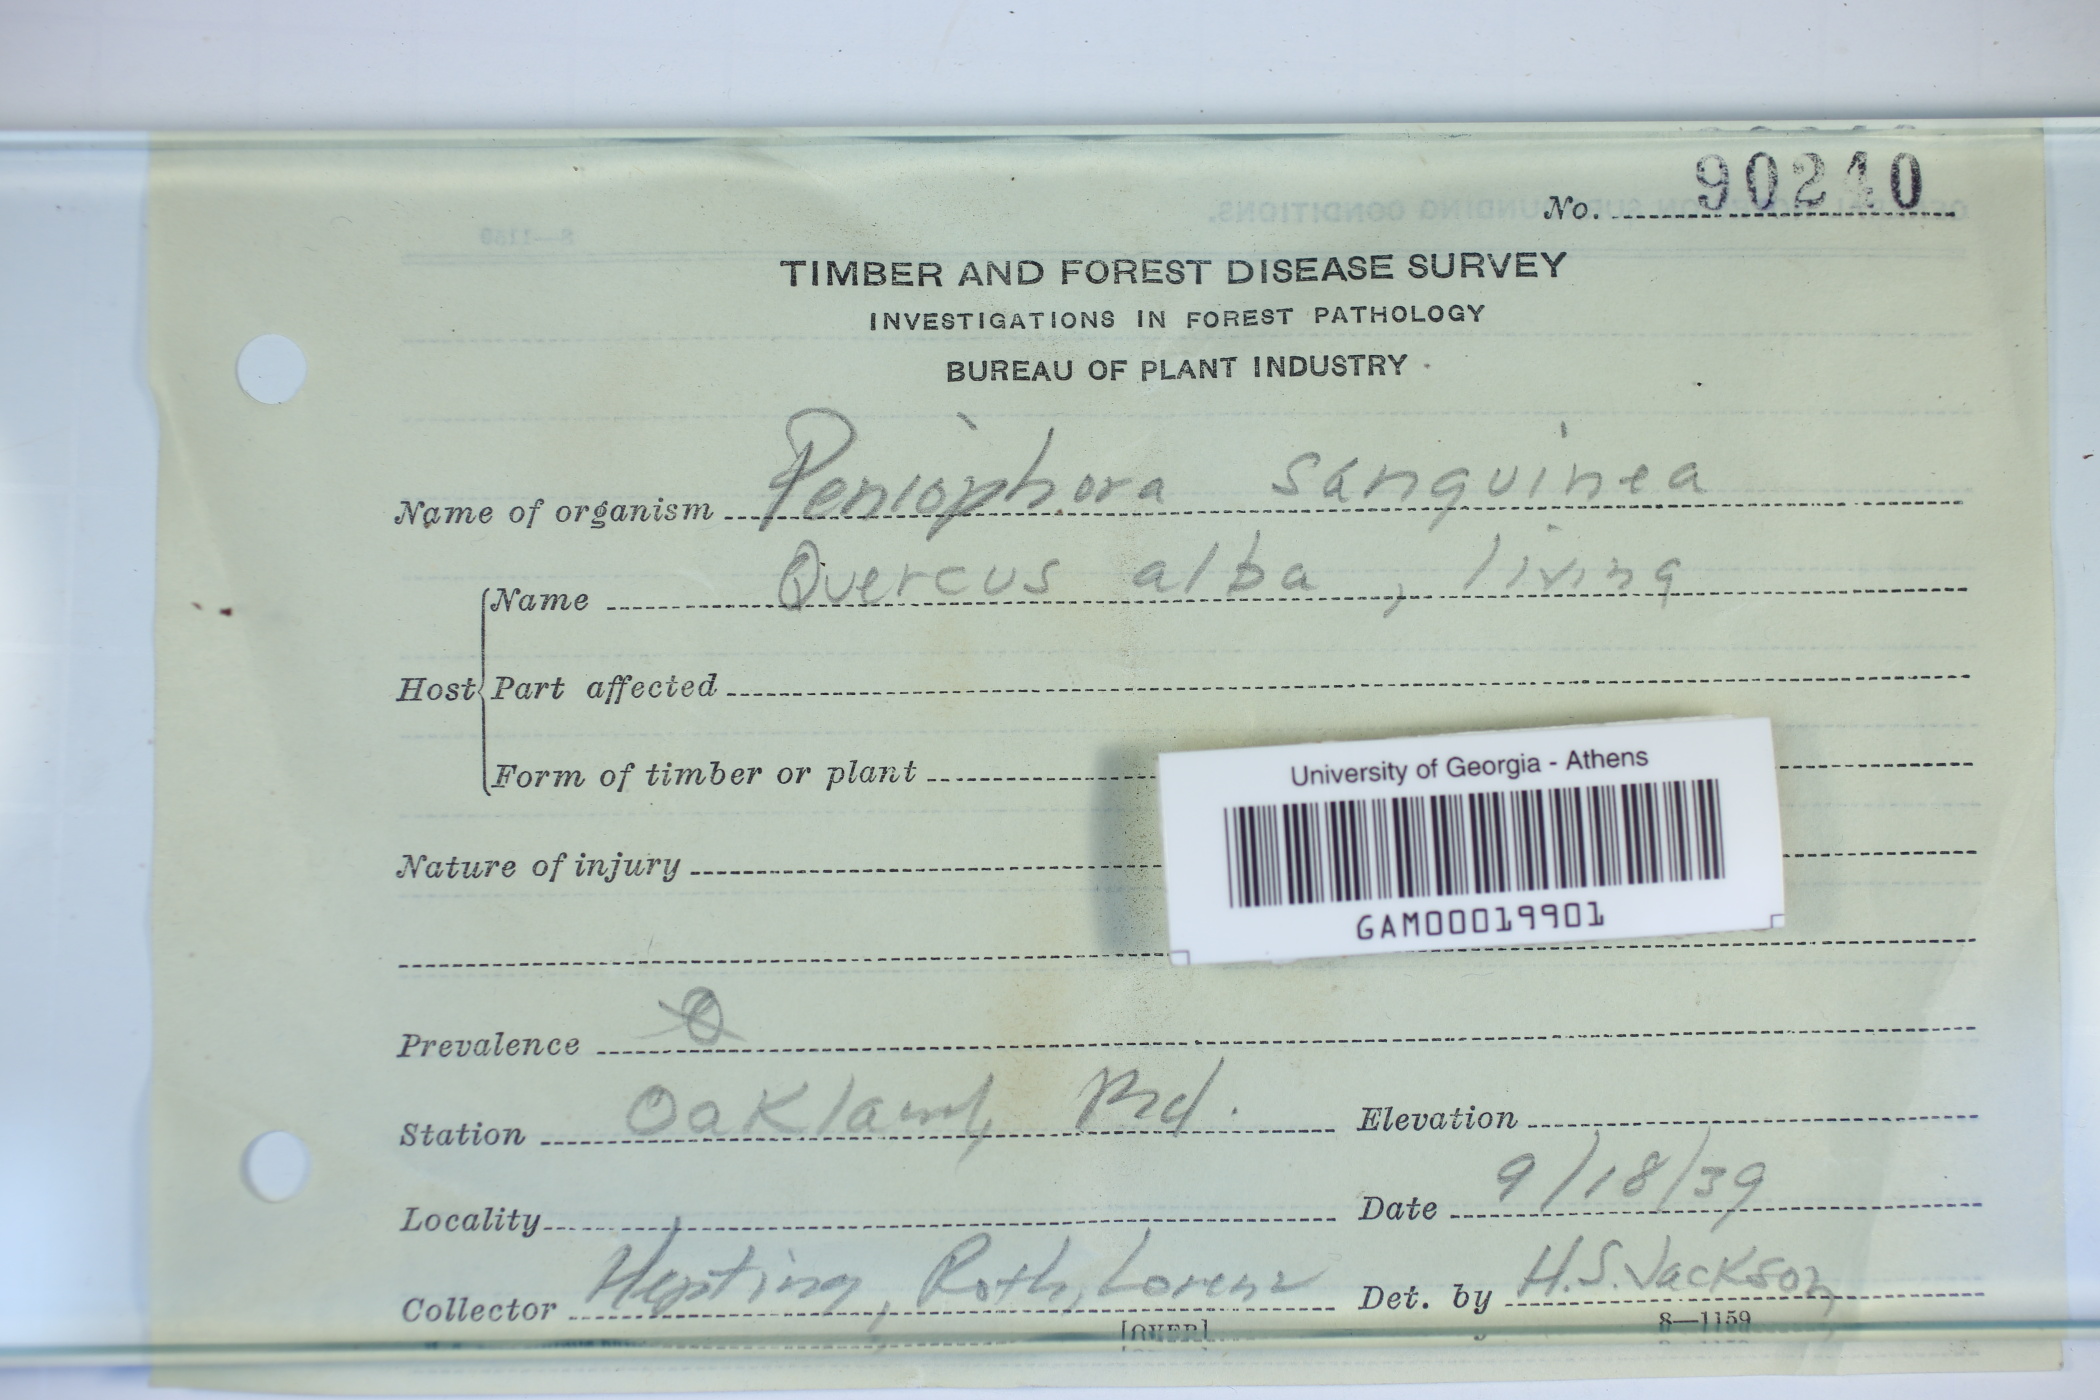 No. 90240
TIMBER AND FOREST DISEASE SURVEY
INVESTIGATIONS IN FOREST PATHOLOGY
BUREAU OF PLANT INDUSTRY
Name of organism Peniophora sanguinea
Host Name Quercus alba, living
Part affected
Form of timber or plant
University of Georgia - Athens
GAM00019901
Nature of injury
Prevalence
Station Oakland, Md. Elevation
Locality Date 9/18/39
Collector Hepting, Roth, Lorenz Det. by H.S. Jackson
[OVER] 8—1159